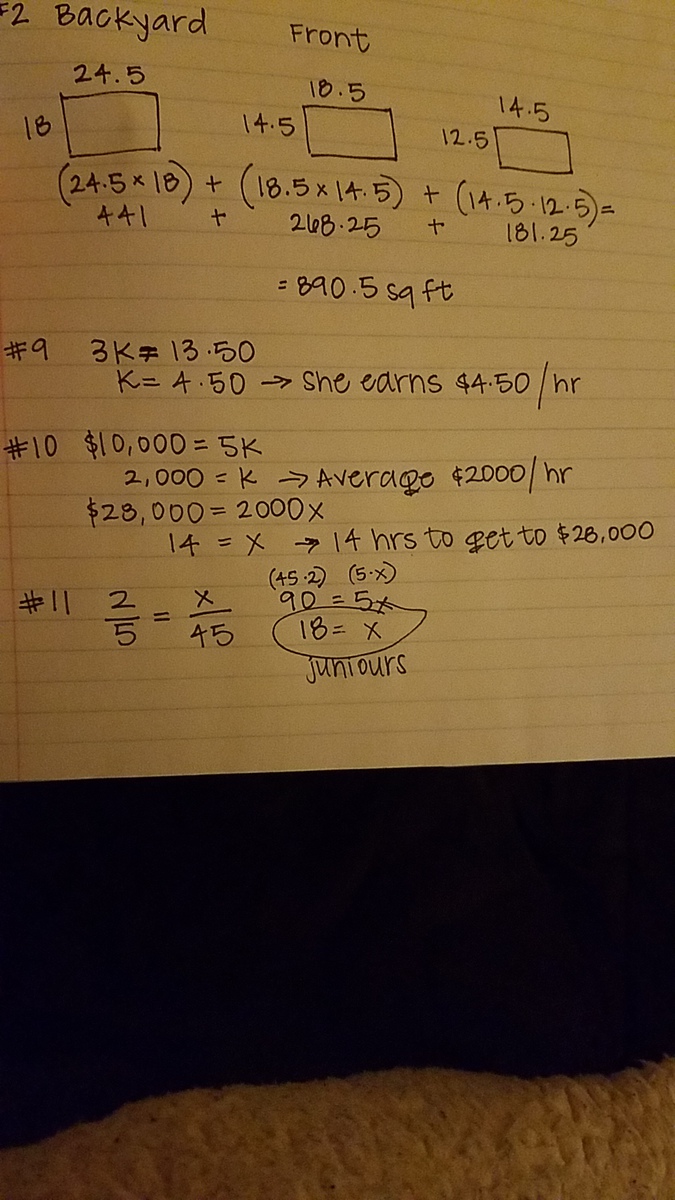 F2 Backyard
Front
24.5
18
18.5
14.5
14.5
12.5
(24.5 x 18) + (18.5 x 14.5) + (14.5 · 12.5) =
441 + 268.25 + 181.25
= 890.5 sq ft
#9 3K = 13.50
K = 4.50 → She earns $4.50/hr
#10 $10,000 = 5K
2,000 = K → Average $2000/hr
$28,000 = 2000x
14 = x → 14 hrs to get to $28,000
(45·2) (5·x)
#11 2/5 = x/45 90 = 5x
18 = x
juniours